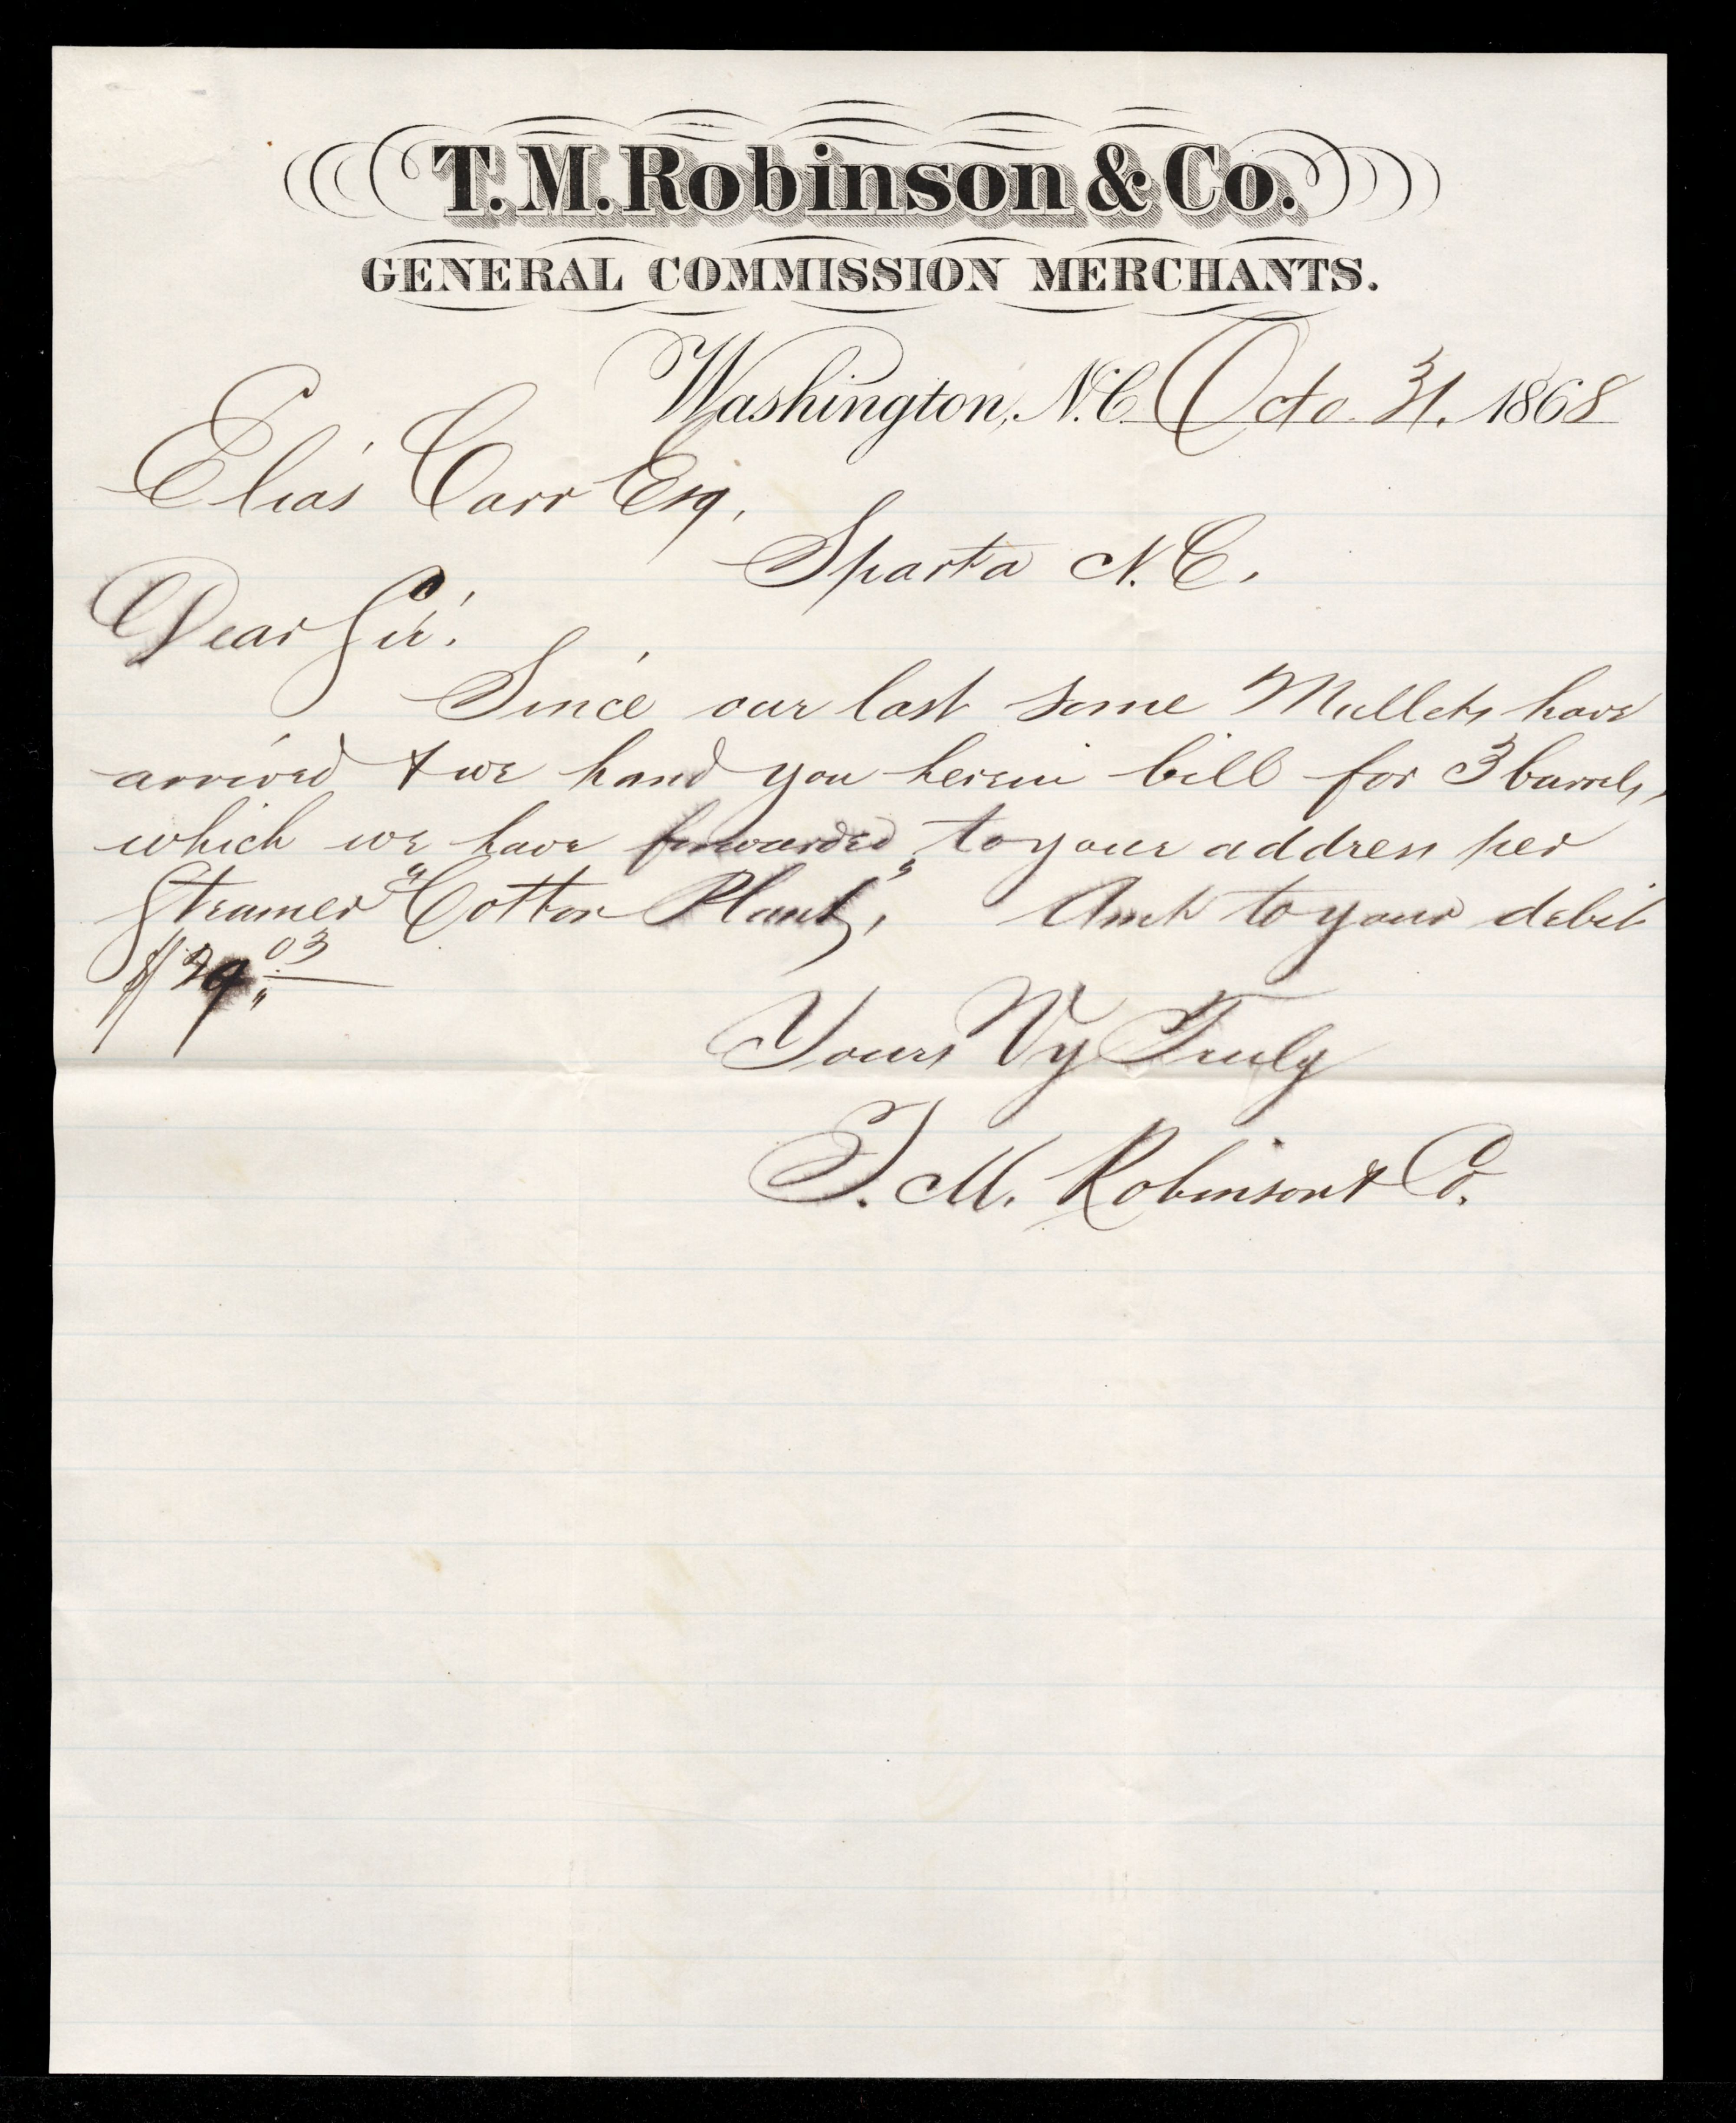 T. M. Robinson & Co.
GENERAL COMMISSION MERCHANTS.
Washington, N.C. Octo. 31. 1868
Elias Carr Esq,
Sparta N.C.
Dear Sir.
Since our last some Mullets have
arrived & we hand you herein bill for 3 barrels,
which we have forwarded to your address per
Steamer "Cotton Plant", Amt to your debit
Yours Vy Truly
T. M. Robinson & Co.